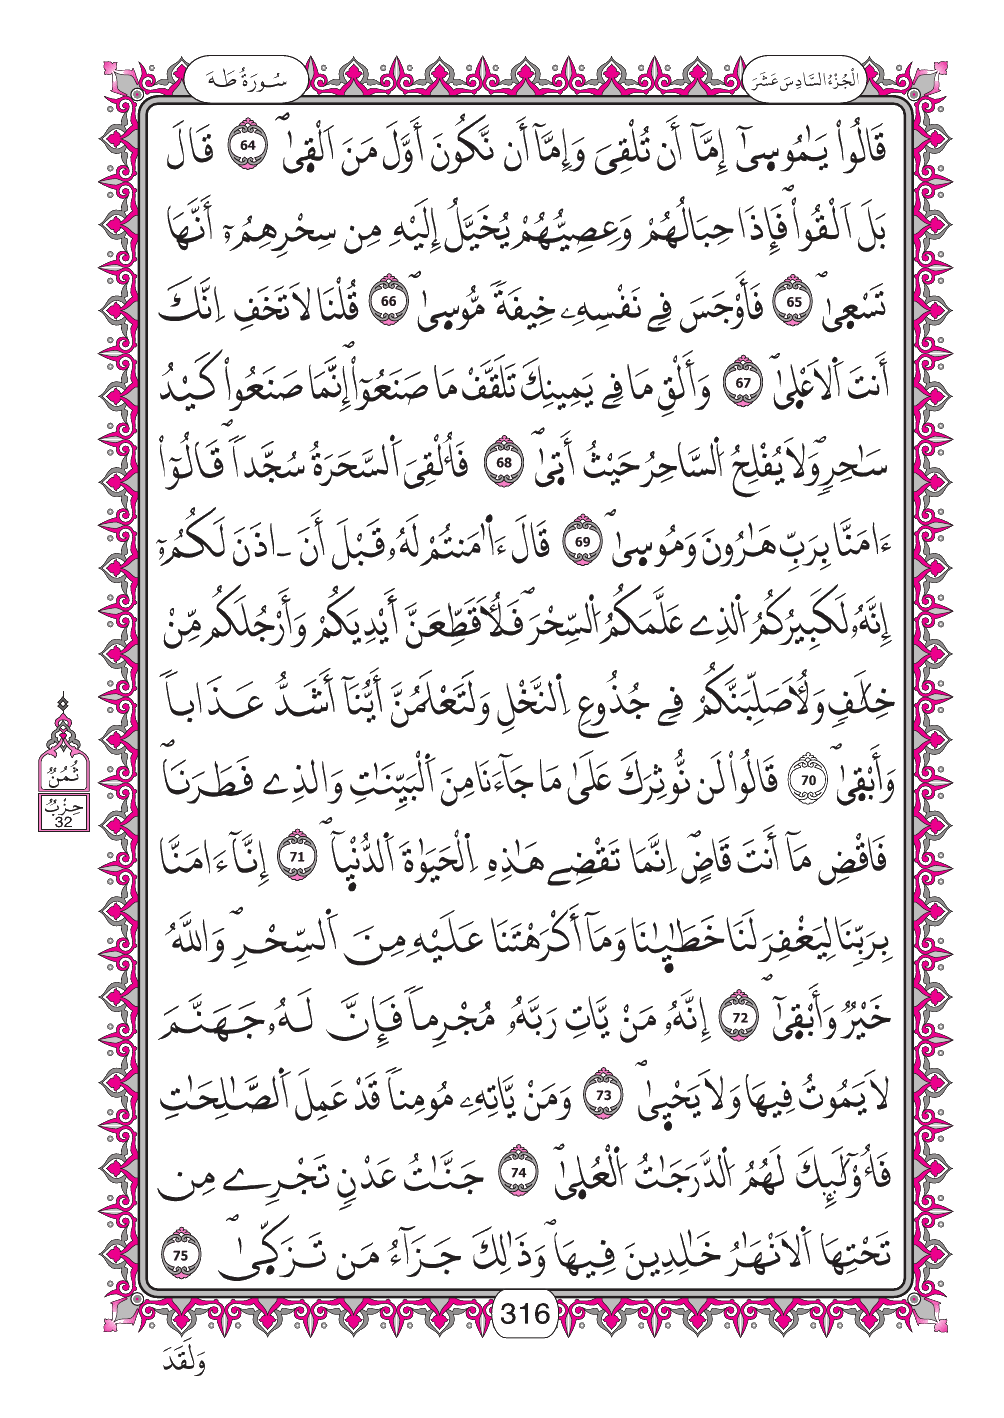 سُورَةُ طَهَ
اَلْجُزْءُ السَّادِسَ عَشَرَ
قَالُواْ يَٰمُوسٜيٰٓ إِمَّآ أَن تُلْقِيَ وَإِمَّآ أَن نَّكُونَ أَوَّلَ مَنَ اَلْقٜيٰۖ 64 قَالَ
بَلَ اَلْقُواْۖ فَإِذَا حِبَالُهُمْ وَعِصِيُّهُمْ يُخَيَّلُ إِلَيْهِ مِن سِحْرِهِمُۥٓ أَنَّهَا
تَسْعٜيٰۖ 65 فَأَوْجَسَ فِے نَفْسِهِۦ خِيفَةٗ مُّوسٜيٰۖ 66 قُلْنَا لَا تَخَفِ اِنَّكَ
أَنتَ اَلَاعْلٜيٰۖ 67 وَأَلْقِ مَا فِے يَمِينِكَ تَلَقَّفْ مَا صَنَعُوٓاْۖ إِنَّمَا صَنَعُواْ كَيْدُ
سَٰحِرٖۖ وَلَا يُفْلِحُ اُ۬لسَّاحِرُ حَيْثُ أَتٜيٰۖ 68 فَأُلْقِيَ اَ۬لسَّحَرَةُ سُجَّداٗۖ قَالُوٓاْ
ءَامَنَّا بِرَبِّ هَٰرُونَ وَمُوسٜيٰۖ 69 قَالَ ءَا۬مَنتُمْ لَهُۥ قَبْلَ أَنَ ـ اذَنَ لَكُمُۥٓ
إِنَّهُۥ لَكَبِيرُكُمُ اُ۬لذِے عَلَّمَكُمُ اُ۬لسِّحْرَۖ فَلَأُقَطِّعَنَّ أَيْدِيَكُمْ وَأَرْجُلَكُم مِّنْ
خِلَٰفٖ وَلَأُصَلِّبَنَّكُمْ فِے جُذُوعِ اِ۬لنَّخْلِ وَلَتَعْلَمُنَّ أَيُّنَآ أَشَدُّ عَذَاباٗ
وَأَبْقٜيٰۖ 70 قَالُواْ لَن نُّوثِرَكَ عَلَىٰ مَا جَآءَنَا مِنَ اَ۬لْبَيِّنَٰتِ وَالذِے فَطَرَنَاۖ
فَاقْضِ مَآ أَنتَ قَاضٍۖ اِنَّمَا تَقْضِے هَٰذِهِ اِ۬لْحَيَوٰةَ اَ۬لدُّنْيٜآۖ 71 إِنَّآ ءَامَنَّا
بِرَبِّنَا لِيَغْفِرَ لَنَا خَطَٰيٰٜنَا وَمَآ أَكْرَهْتَنَا عَلَيْهِ مِنَ اَ۬لسِّحْرِۖ وَاللَّهُ
خَيْرٞ وَأَبْقٜيٰٓۖ 72 إِنَّهُۥ مَنْ يَّاتِ رَبَّهُۥ مُجْرِماٗ فَإِنَّ لَهُۥ جَهَنَّمَ
لَا يَمُوتُ فِيهَا وَلَا يَحْيٜيٰۖ 73 وَمَنْ يَّاتِهِۦ مُومِناٗ قَدْ عَمِلَ اَ۬لصَّٰلِحَٰتِ
فَأُوْلَٰٓئِكَ لَهُمُ اُ۬لدَّرَجَٰتُ اُ۬لْعُلٜيٰۖ 74 جَنَّٰتُ عَدْنٖ تَجْرِے مِن
تَحْتِهَا اَ۬لَانْهَٰرُ خَٰلِدِينَ فِيهَاۖ وَذَٰلِكَ جَزَآءُ مَن تَزَكّٜيٰۖ 75
ثُمُنٌ
حِزْبٌ
32
316
وَلَقَدَ